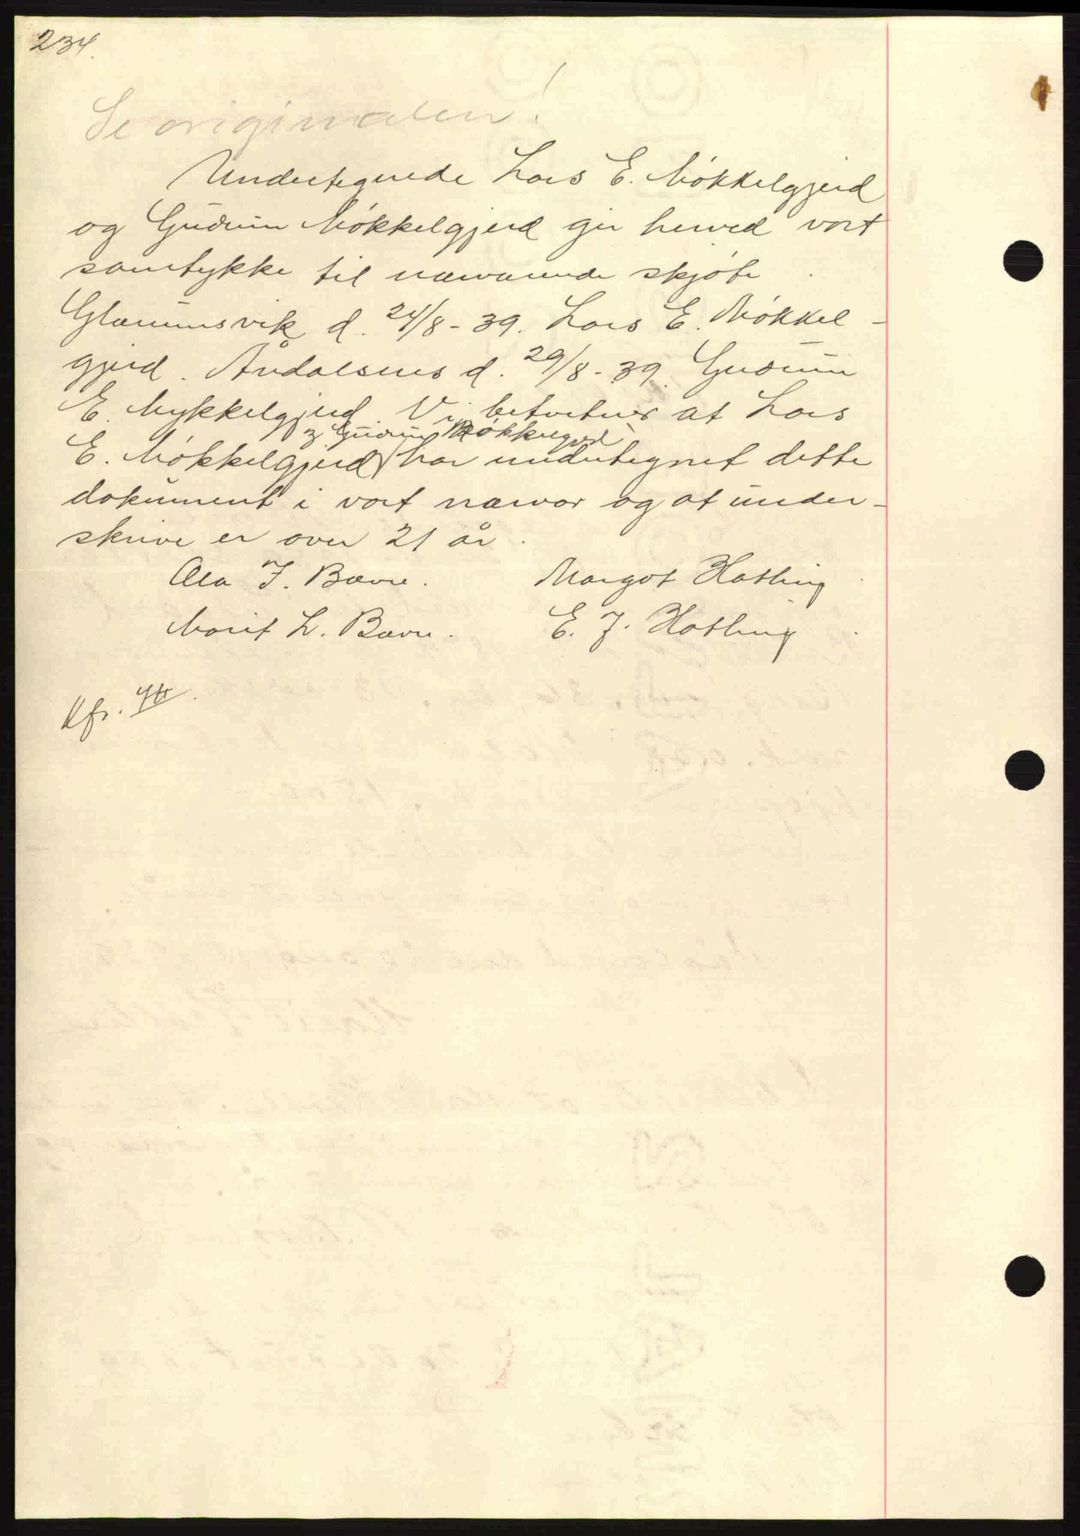 234.
Se originalen!
Undertegnede Lars E. Møkkelgjerd
og Gudrun Møkkelgjerd gir herved vort
samtykke til nærværende skjøte
Glærumsvik d. 24/8-39. Lars E. Møkkel-
gjerd. Åndalsnes d. 29/8-39. Gudrun
E. Mykkelgjerd. Vi bevitner at Lars
& Gudrun Møkkelgjerd
E. Møkkelgjerd har undertegnet dette
dokument i vort nærvær og at under-
skrive er over 21 år.
Ola J. Bævre. Margot Hatling
Marit L. Bævre. E. J. Hatling
Kfr.